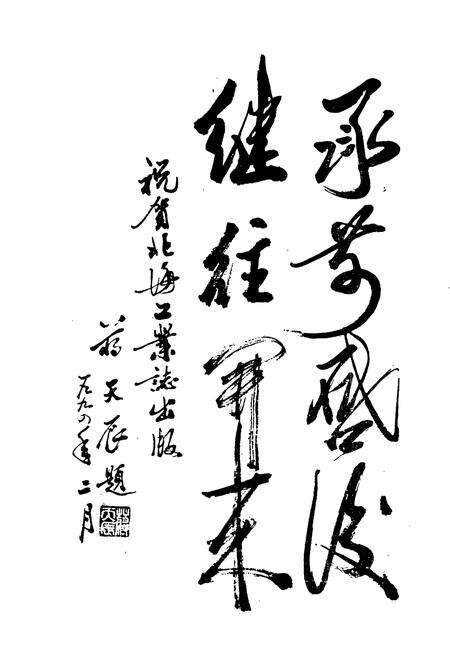 承前啓後
継往開来
祝賀北海工業誌出版
蒋天辰題
一九九〇年二月